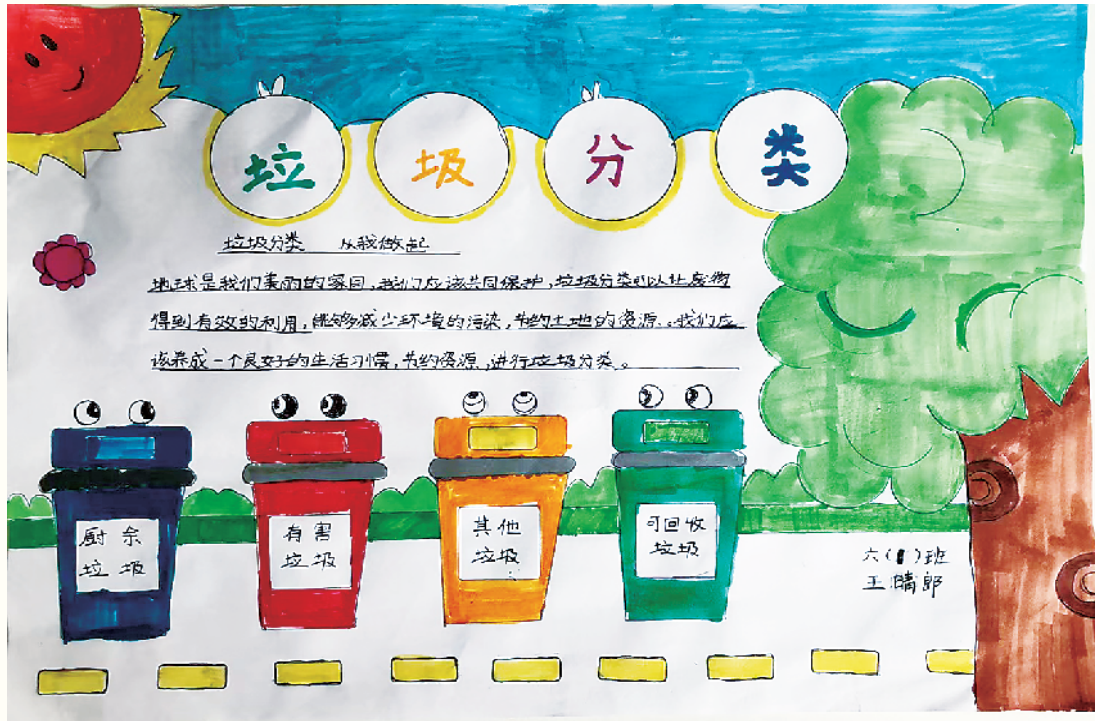 垃圾分类
垃圾分类 从我做起
地球是我们美丽的家园,我们应该共同保护,垃圾分类可以让废物
得到有效的利用,能够减少环境的污染,节约土地的资源.。我们应
该养成一个良好的生活习惯,节约资源,进行垃圾分类。
厨余
垃圾
有害
垃圾
其他
垃圾
可回收
垃圾
六()班
王晴郎